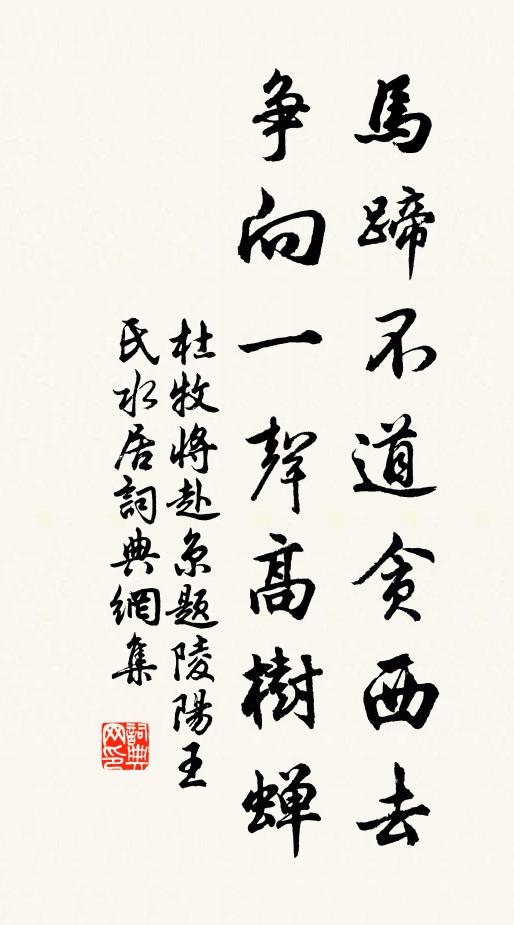 馬蹄不道貪西去
争向一聲高樹蝉
杜牧將赴京题陵陽王
氏水居詞典網集
詞典网印